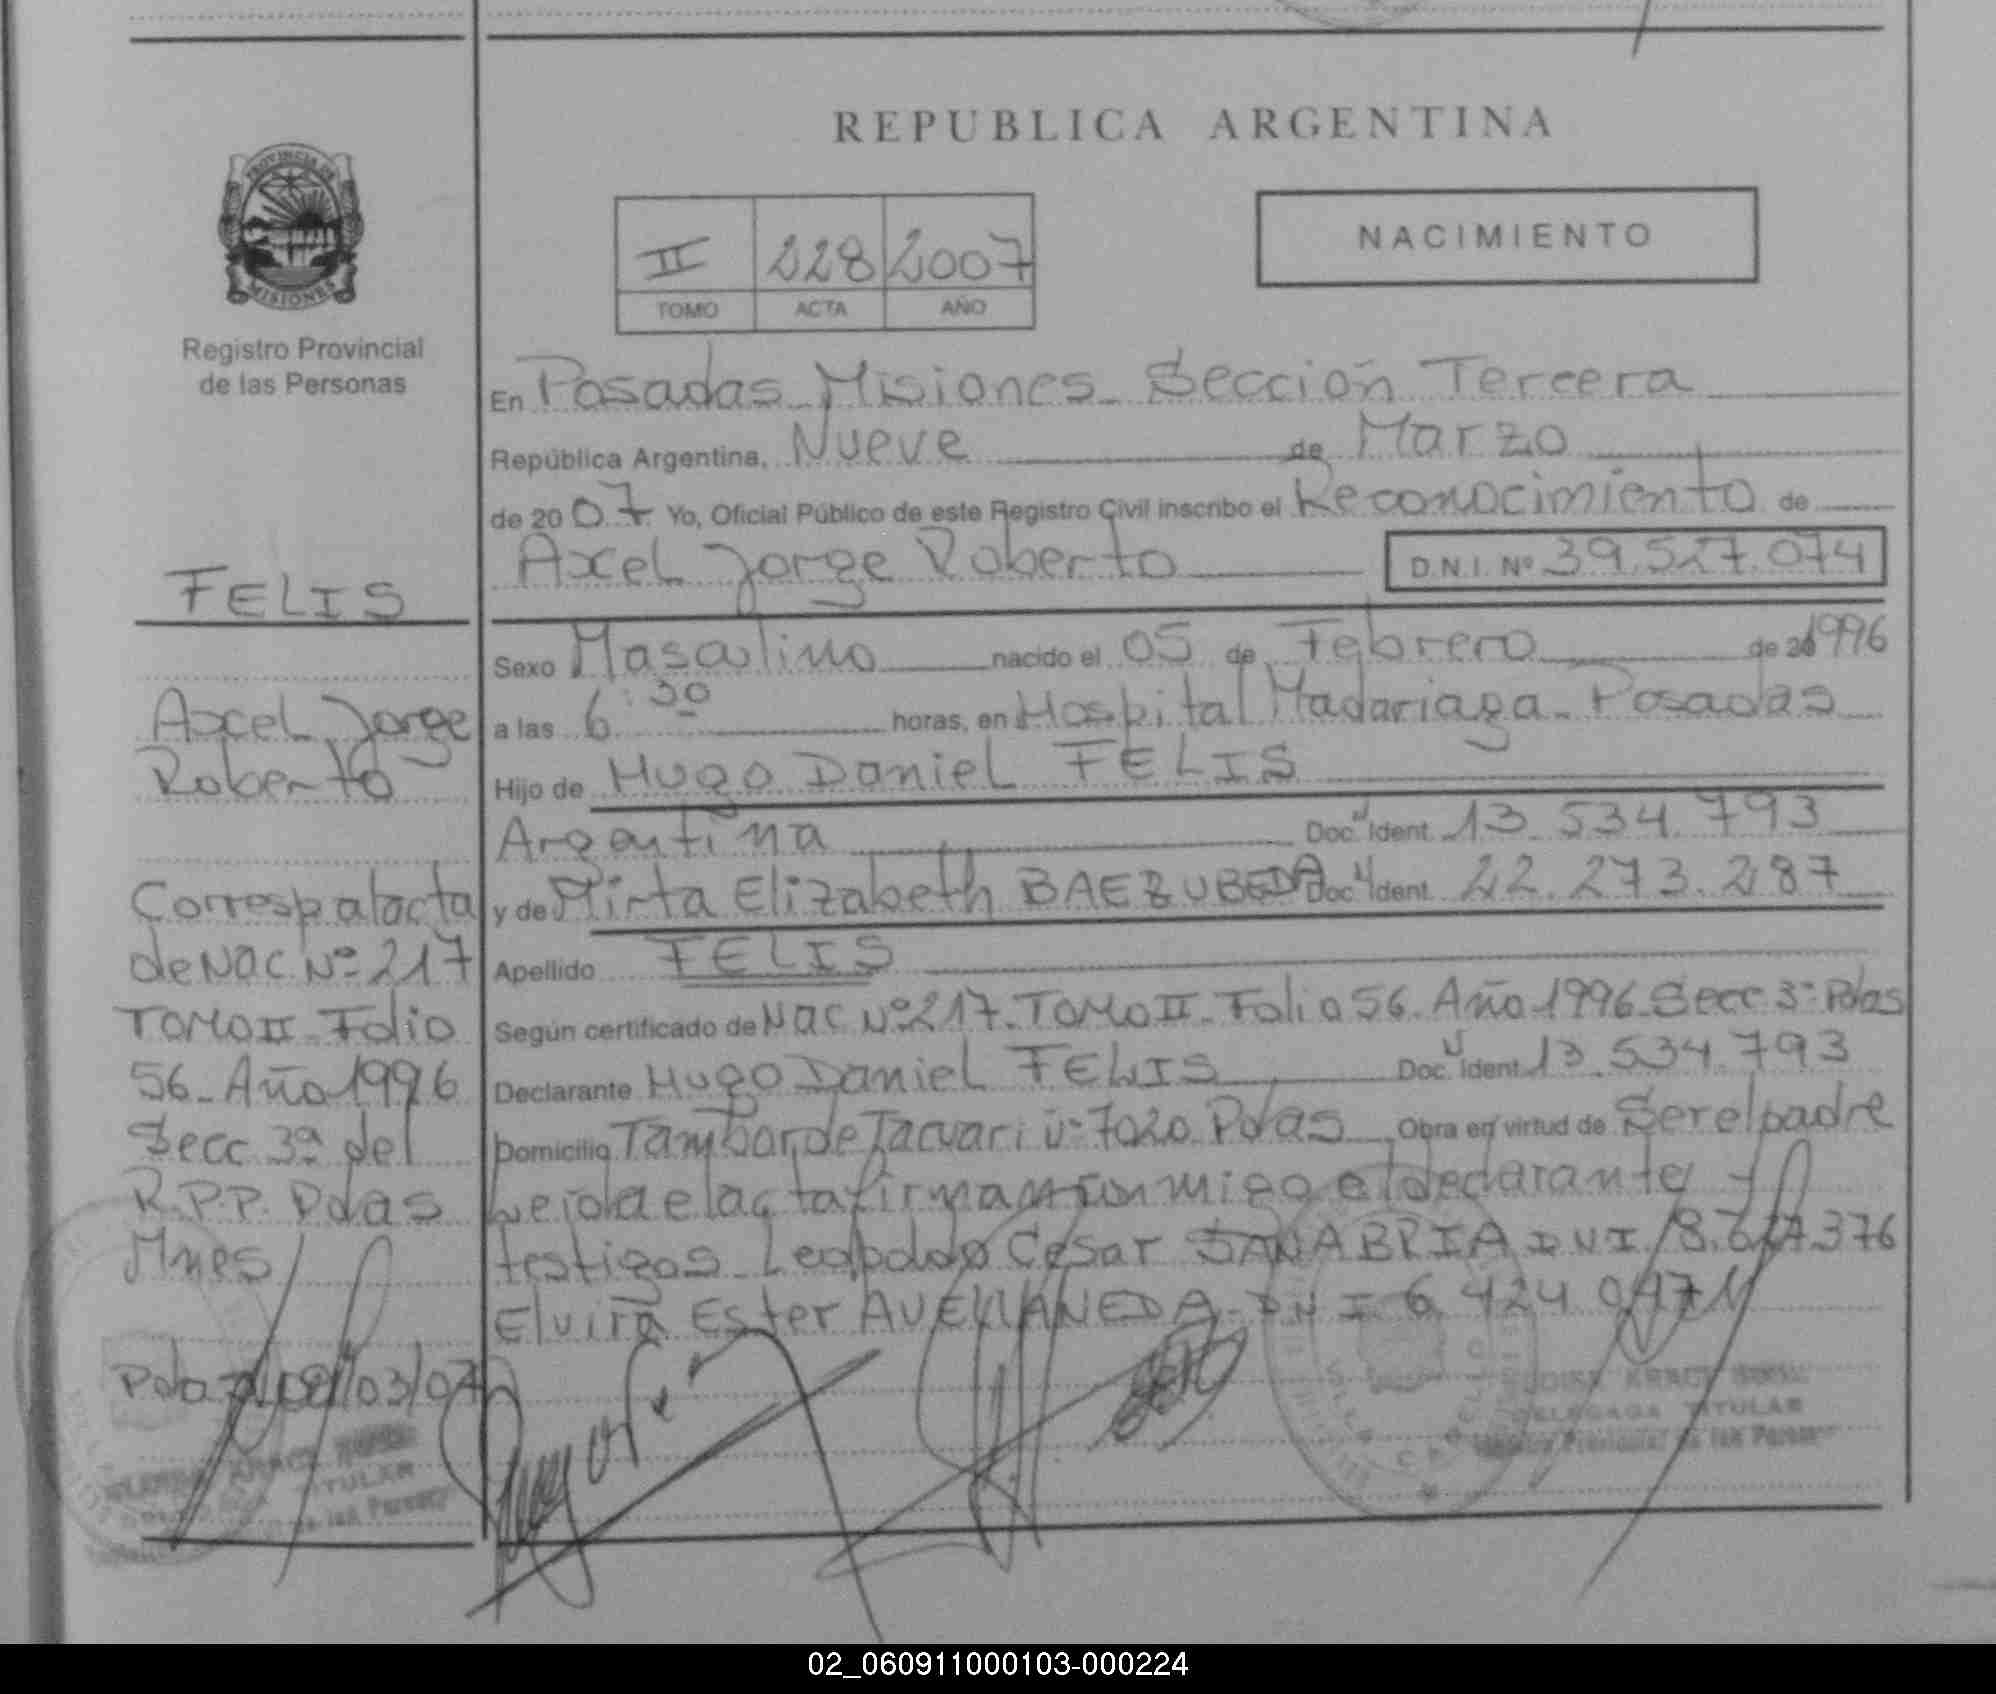 REPUBLICA ARGENTINA
PROVINCIA DE
MISIONES
Registro Provincial
de las Personas
II 228 2007
TOMO ACTA AÑO
NACIMIENTO
En Posadas Misiones Sección Tercera
República Argentina, Nueve de Marzo
de 2007 Yo, Oficial Público de este Registro Civil inscribo el Reconocimiento de
Axel Jorge Roberto D.N.I. Nº 39.527.074
Sexo Masculino nacido el 05 de Febrero de 1996
a las 6:30 horas, en Hospital Madariaga Posadas
Hijo de Hugo Daniel FELIS
Argentina Doc. Ident. 13.534.793
y de Mirta Elizabeth BAEZ UBEDA Doc. Ident. 22.273.287
Apellido FELIS
Según certificado de Nac Nº 217. TOMO II. Folio 56. Año 1996. Secc 3ª Pdas
Declarante Hugo Daniel FELIS Doc. Ident. 13.534.793
Domicilio Tambor de Tacuari Nº 7020 Pdas Obra en virtud de Ser el padre
Leida el acta firman conmigo el declarante y
testigos Leopoldo Cesar SANABRIA DNI
Elvira Ester AVELLANEDA DNI 6.424
FELIS
Axel Jorge
Roberto
Corresp al acta
de Nac. Nº 217
TOMO II. Folio
56. Año 1996
Secc 3ª del
R.P.P. Pdas
Mnes
/03/07
TITULAR
DELEGADA TITULAR
Registro Provincial de las Personas
02_060911000103-000224